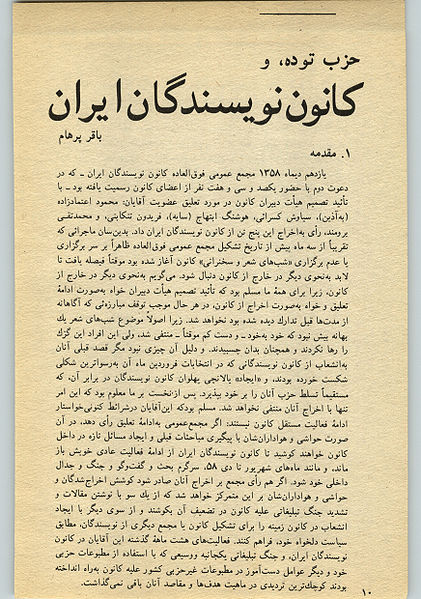 حزب توده، و
کانون نویسندگان ایران
باقر پرهام
۱. مقدمه
یازدهم دیماه ۱۳۵۸ مجمع عمومی فوق‌العاده کانون نویسندگان ایران ـ که در
دعوت دوم با حضور یکصد و سی و هفت نفر از اعضای کانون رسمیت یافته بود ـ با
تأئید تصمیم هیأت دبیران کانون در مورد تعلیق عضویت آقایان: محمود اعتمادزاده
(به‌آذین)، سیاوش کسرائی، هوشنگ ابتهاج (سایه)، فریدون تنکابنی، و محمدتقی
برومند، رأی به‌اخراج این پنج تن از کانون نویسندگان ایران داد. بدین‌سان ماجرائی که
تقریباً از سه ماه پیش از تاریخ تشکیل مجمع عمومی فوق‌العاده ظاهراً بر سر برگزاری
یا عدم برگزاری «شب‌های شعر و سخنرانی» کانون آغاز شده بود موقتاً فیصله یافت تا
لابد به‌نحوی دیگر در خارج از کانون دنبال شود. می‌گویم به‌نحوی دیگر در خارج از
کانون، زیرا برای همهٔ ما مسلم بود که تأئید تصمیم هیأت دبیران خواه به‌صورت ادامهٔ
تعلیق و خواه به‌صورت اخراج از کانون، در هر حال موجب توقف مبارزه‌ئی که آگاهانه
از مدت‌ها قبل تدارك دیده شده بود نخواهد شد. زیرا اصولاً موضوع شب‌های شعر یك
بهانه بیش نبود که خود به‌خود ـ و دست کم موقتاً ـ منتفی شد، ولی این افراد این گزك
را رها نکردند و همچنان بدان چسبیدند. و دلیل آن چیزی نبود مگر قصد قبلی آنان
به‌انشعاب از کانون نویسندگانی که در انتخابات فروردین ماه آن به‌رسواترین شکلی
شکست خورده بودند، و «ایجاد» یالانچی پهلوان کانون نویسندگان در برابر آن، که
مستقیماً تسلط حزب آنان را بر خود بپذیرد. پس ازنخست بر ما معلوم بود که این امر
تنها با اخراج آنان منتفی نخواهد شد. مسلم بودکه این‌آقایان درشرائط کنونی‌خواستار
ادامهٔ فعالیت مستقل کانون نیستند: اگر مجمع‌عمومی به‌ادامهٔ تعلیق رأی دهد، در آن
صورت حواشی و هواداران‌شان با پیگیری مباحثات قبلی و ایجاد مسائل تازه در داخل
کانون خواهند کوشید تا کانون نویسندگان ایران از ادامهٔ فعالیت عادی خویش باز
ماند، و مانند ماه‌های شهریور تا دی ۵۸، سرگرم بحث و گفت‌وگو و جنگ و جدال
داخلی خود شود. اگر هم رأی مجمع بر اخراج آنان صادر شود کوشش اخراج‌شدگان و
حواشی و هواداران‌شان بر این متمرکز خواهد شد که ازیك سو با نوشتن مقالات و
تشدید جنگ تبلیغاتی علیه کانون در تضعیف آن بکوشند و از سوی دیگر با ایجاد
انشعاب در کانون زمینه را برای تشکیل کانون یا مجمع دیگری از نویسندگان، مطابق
سیاست دلخواه خود، فراهم کنند. فعالیت‌های هشت ماههٔ گذشته این آقایان در کانون
نویسندگان ایران، و جنگ تبلیغاتی یکجانبه ووسیعی که با استفاده از مطبوعات حزبی
خود و دیگر عوامل دست‌آموز در مطبوعات غیرحزبی کشور علیه کانون به‌راه انداخته
بودند کوچك‌ترین تردیدی در ماهیت هدف‌ها و مقاصد آنان باقی نمی‌گذاشت.
۱۰